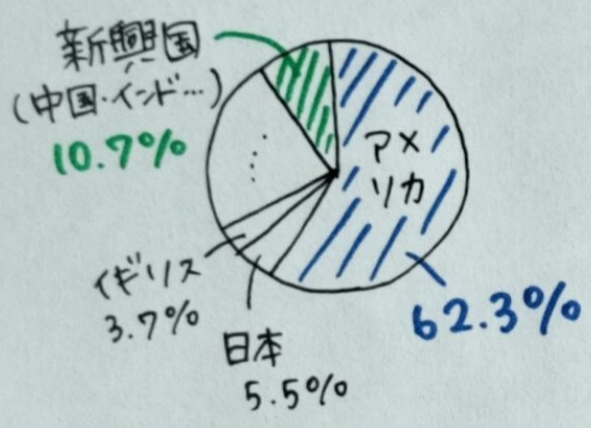 新興国
(中国・インド…)
10.7%
アメ
リカ
62.3%
イギリス
3.7%
日本
5.5%